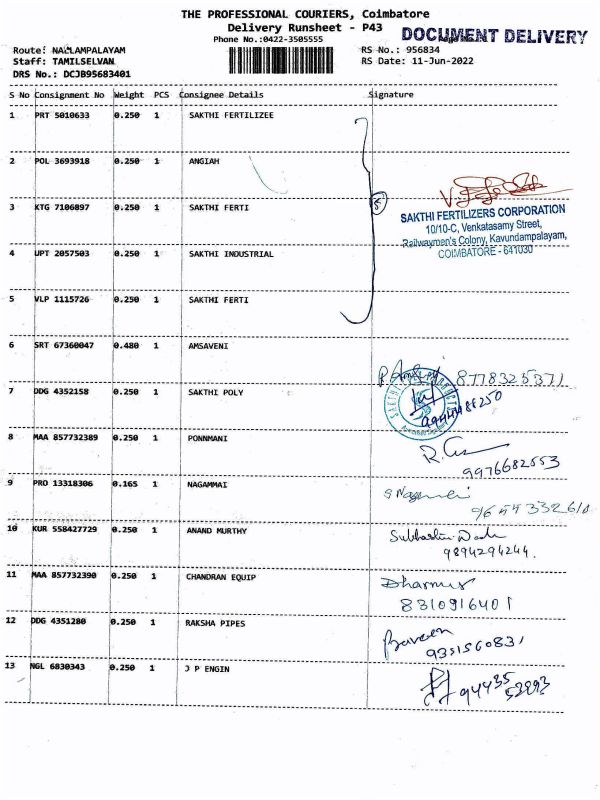 THE PROFESSIONAL COURIERS, Coimbatore
Delivery Runsheet - P43
DOCUMENT DELIVERY
Phone No.:0422-3505555
Route: NALLAMPALAYAM
RS No.: 956834
Staff: TAMILSELVAN
RS Date: 11-Jun-2022
DRS No.: DCJB95683401
S No Consignment No Weight PCS Consignee Details Signature
1 PRT 5010633 0.250 1 SAKTHI FERTILIZEE
2 POL 3693918 0.250 1 ANGIAH
3 KTG 7106897 0.250 1 SAKTHI FERTI
5
SAKTHI FERTILIZERS CORPORATION
10/10-C, Venkatasamy Street,
Railwaymen's Colony, Kavundampalayam,
COIMBATORE - 641030
4 UPT 2057503 0.250 1 SAKTHI INDUSTRIAL
5 VLP 1115726 0.250 1 SAKTHI FERTI
6 SRT 67360047 0.480 1 AMSAVENI
8778325371
7 DDG 4352158 0.250 1 SAKTHI POLY
8 MAA 857732389 0.250 1 PONNMANI
9976682553
9 PRO 13318306 0.165 1 NAGAMMAI
10 KUR 558427729 0.250 1 ANAND MURTHY
9894294244.
11 MAA 857732390 0.250 1 CHANDRAN EQUIP
8310916401
12 DDG 4351280 0.250 1 RAKSHA PIPES
Praveen
9351560831
13 NGL 6830343 0.250 1 J P ENGIN
94435